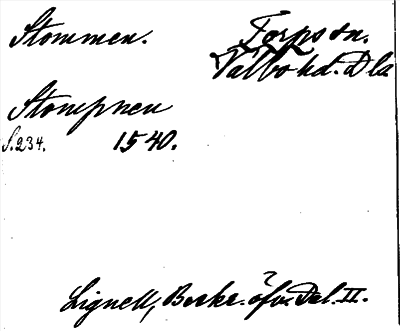 Stommen. Torps sn.
Valbo hd. Dla
Stompnen
S.234. 1540.
Lignell, Beskr. öfv. Dal. II.